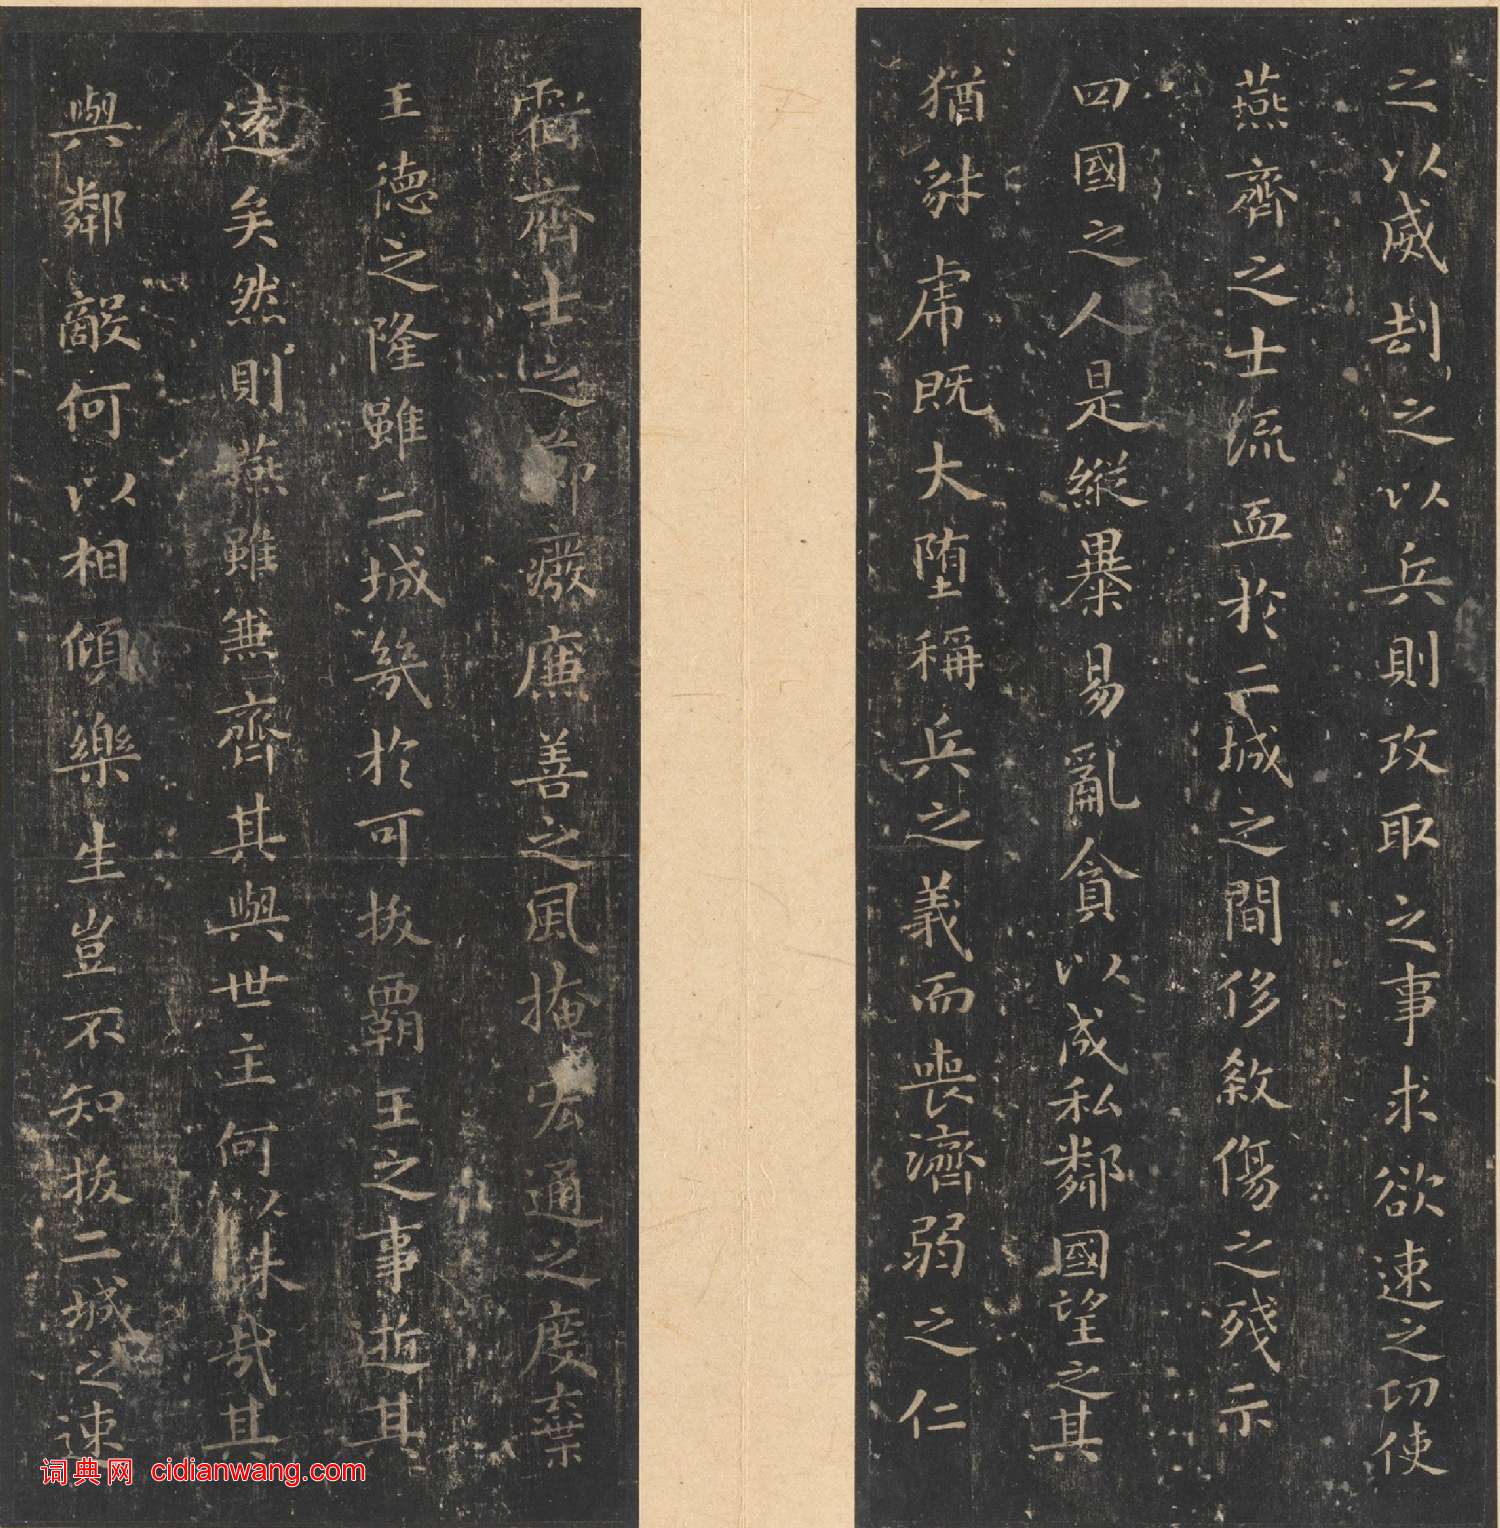 之以威刧之以兵則攻取之事求欲速之功使
燕齊之士流血於二城之間侈敘傷之殘示
四國之人是縱暴易亂貪以成私鄰國望之其
猶豺虎既大墮稱兵之義而喪濟弱之仁
虧齊士之節廢廉善之風掩宏通之度棄
王德之隆雖二城幾於可拔霸王之事逝其
遠矣然則燕雖兼齊其與世主何以殊哉其
與鄰敵何以相傾樂生豈不知拔二城之速
词典网 cidianwang.com